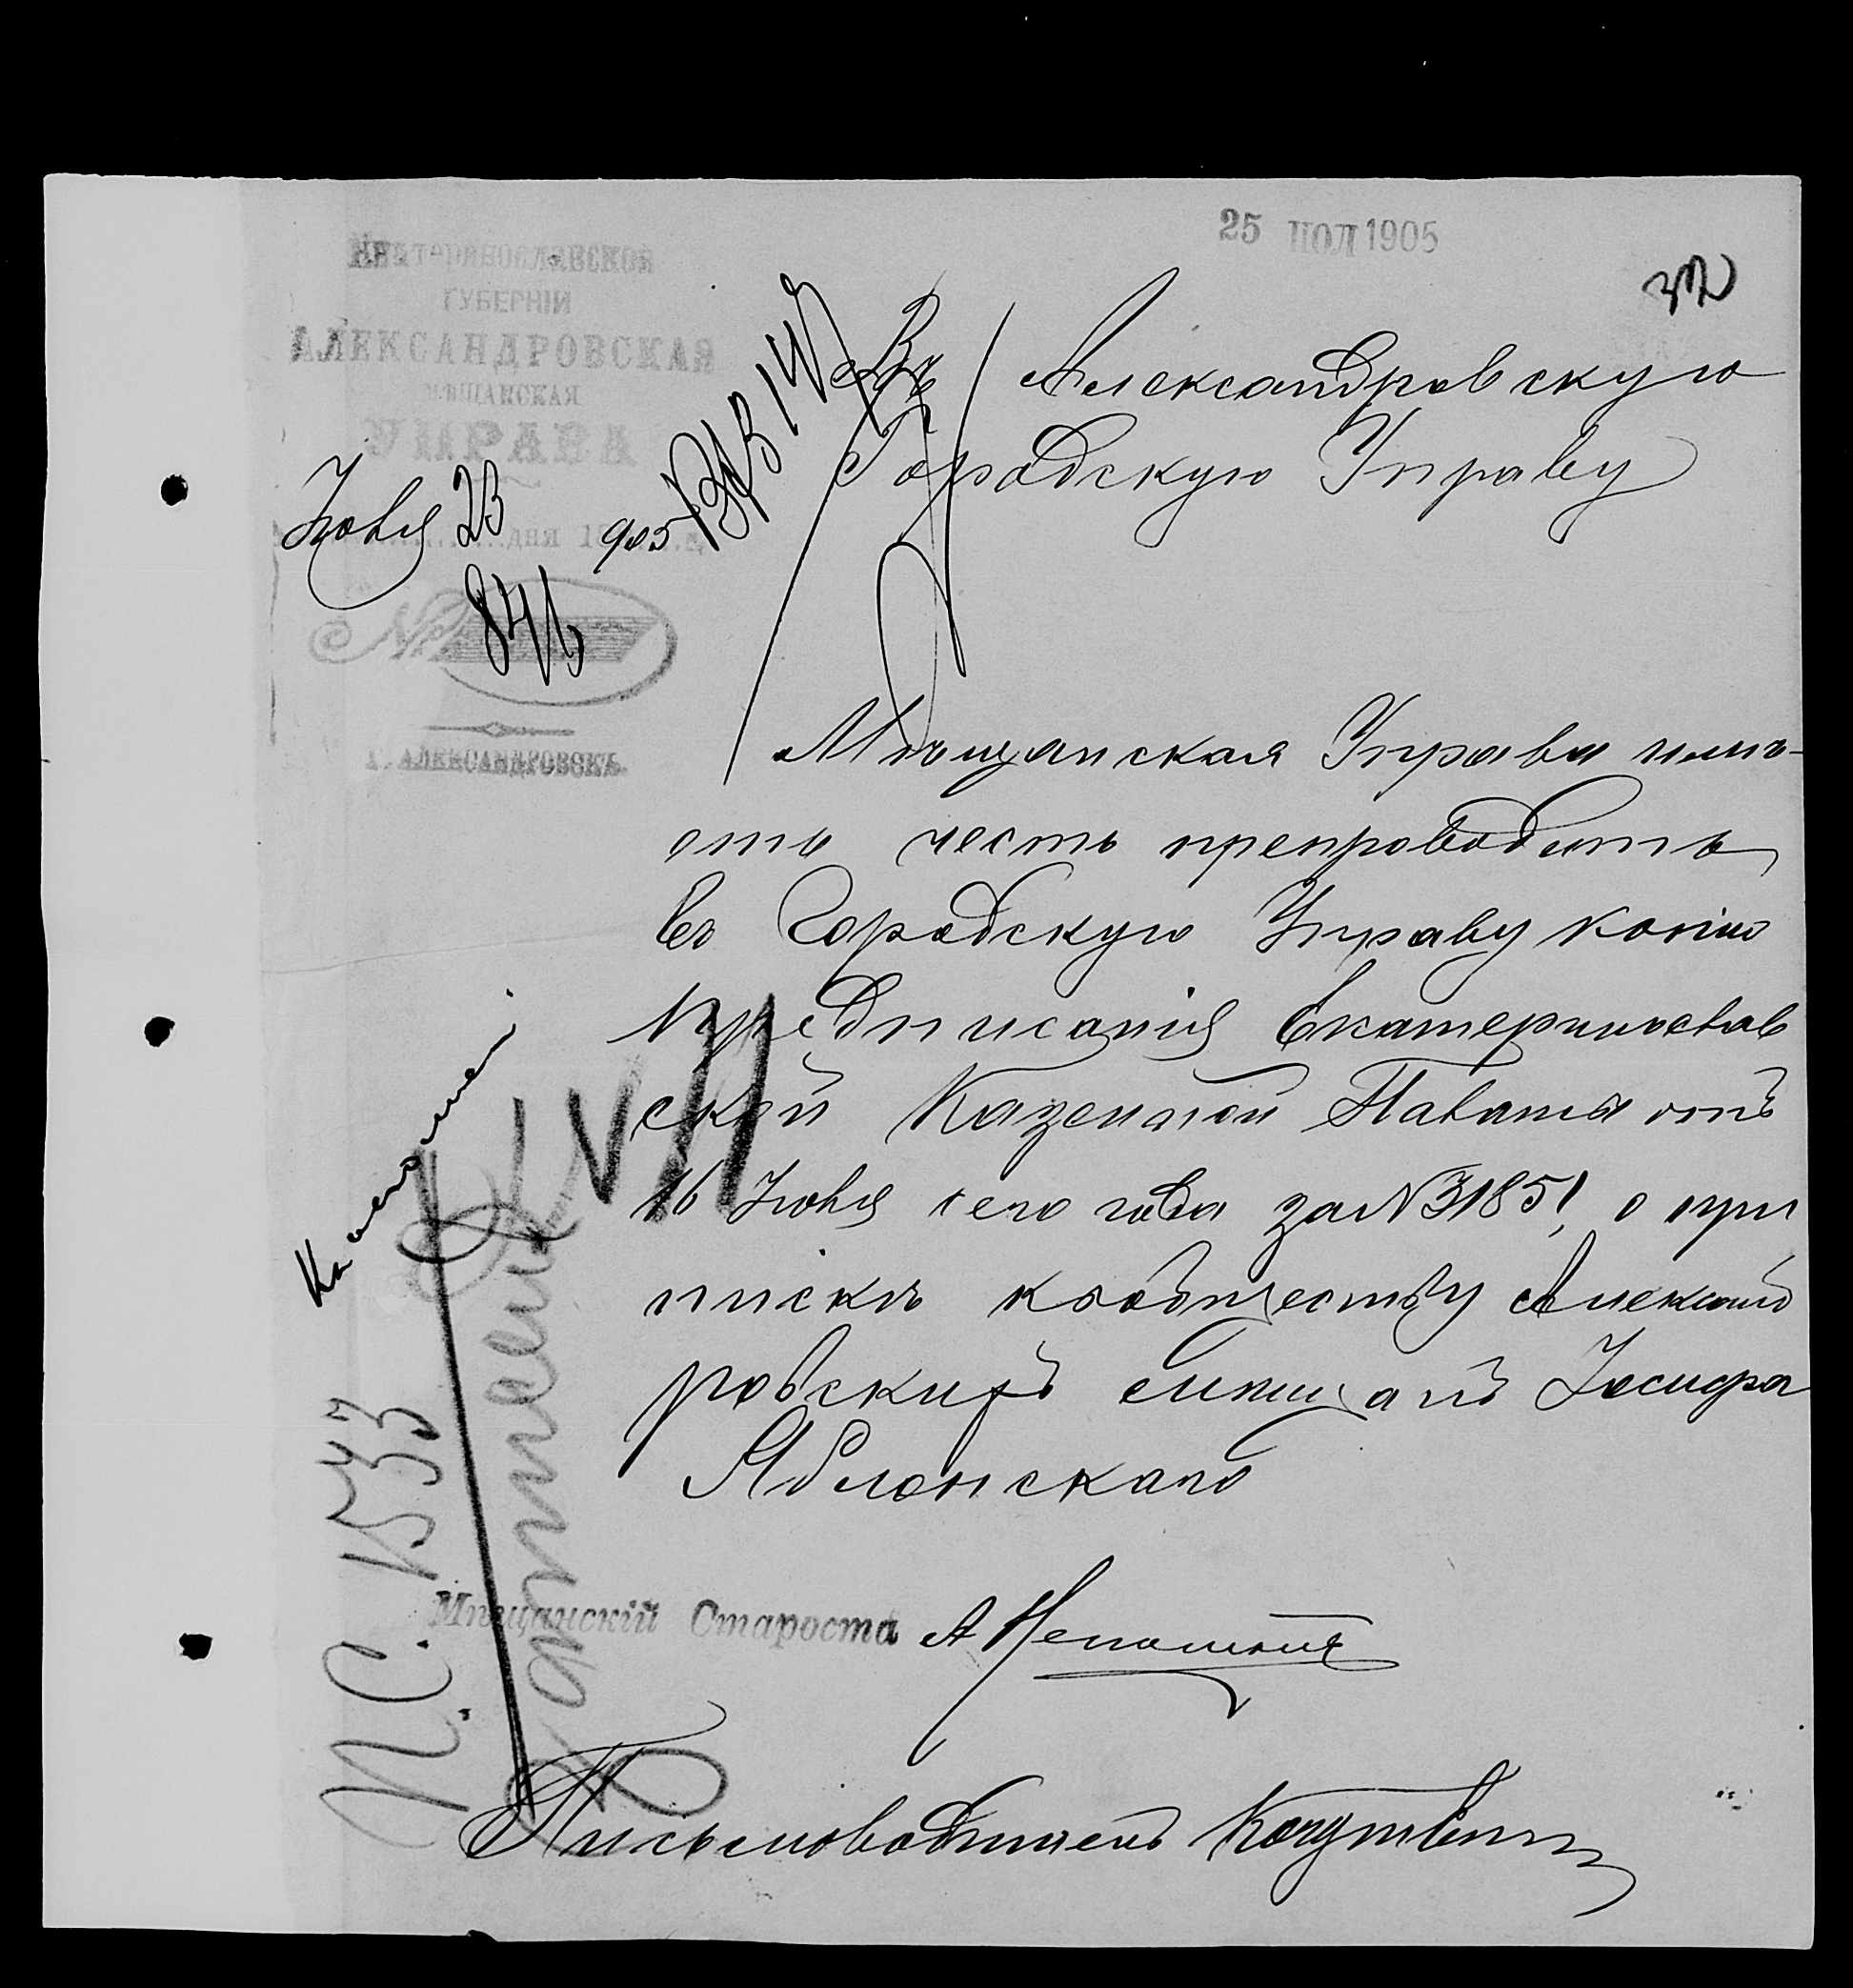 25 ІЮЛ 1905
Екатеринославской
ГУБЕРНІИ
АЛЕКСАНДРОВСКАЯ
МѢЩАНСКАЯ
УПРАВА
Іюля 23 дня 1905 г.
№ 846
Г. АЛЕКСАНДРОВСКЪ.
Въ Александровскую
Городскую Управу
Мѣщанская Управа имѣ-
етъ честь препроводить
въ Городскую Управу копію
предписанія Екатеринослав
ской Казенной Палаты отъ
16 Іюля сего года за № 31851, о при
пискѣ къ обществу Александ
ровскихъ мѣщанъ Іосифа
Яблонскаго
Мѣщанскій Староста А
Письмоводитель
VII
П.С. 1533